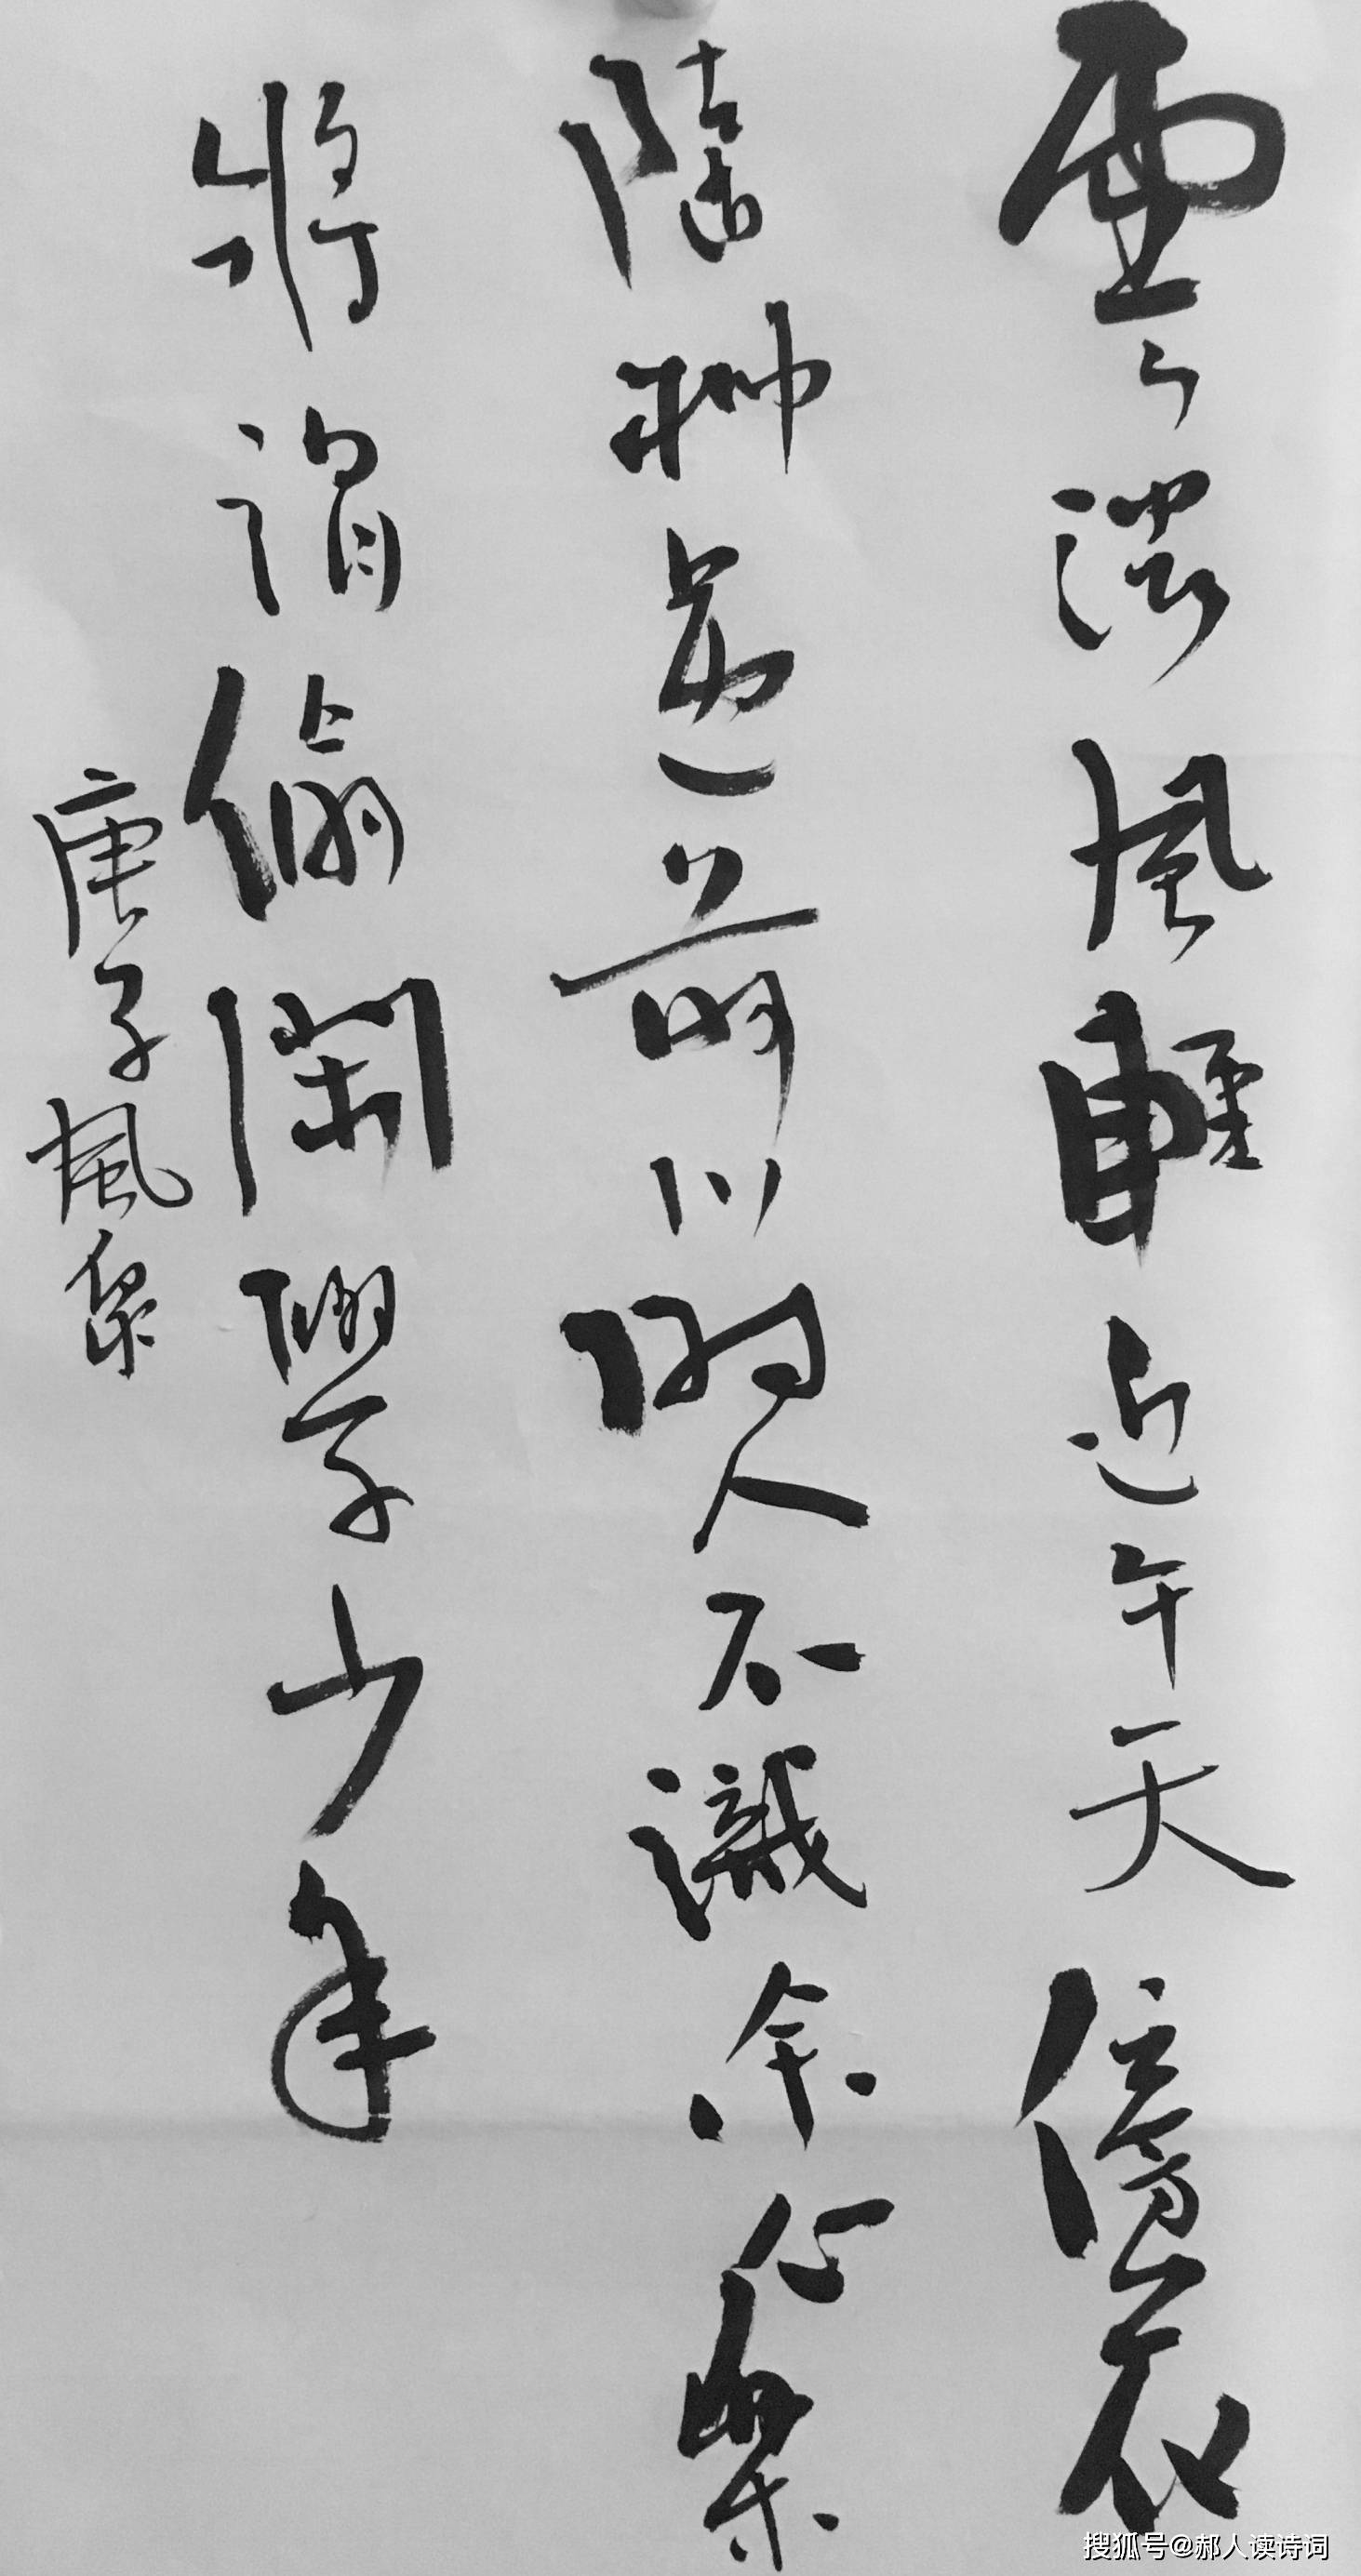 雲淡風輕近午天傍花
隨柳過前川時人不識余心樂
將謂偷閑學少年
庚子風泉
搜狐号@郝人读诗词